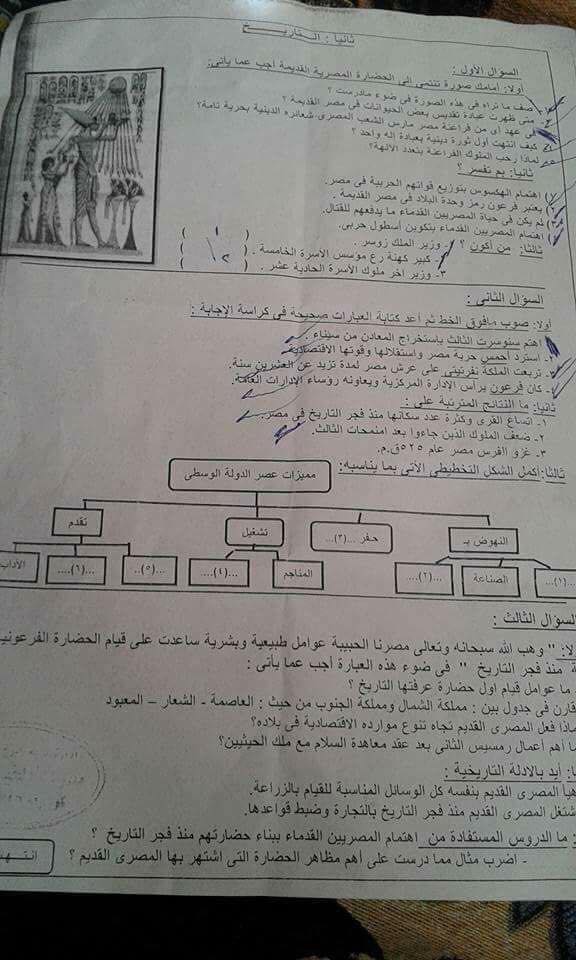 ثانيا : التاريخ
السؤال الأول :
أولا: أمامك صورة تنتمى الى الحضارة المصرية القديمة أجب عما يأتى:
١- صف ما تراه فى هذه الصورة فى ضوء مادرست ؟
٢- متى ظهرت عبادة تقديس بعض الحيوانات فى مصر القديمة ؟
فى عهد أى من فراعنة مصر مارس الشعب المصرى شعائره الدينية بحرية تامة؟
كيف انتهت أول ثورة دينية بعبادة إله واحد ؟
لماذا رحب الملوك الفراعنة بتعدد الآلهة؟
ثانيا: بم تفسر ؟
١) اهتمام الهكسوس بتوزيع قواتهم الحربية فى مصر.
٢) يعتبر فرعون رمز وحدة البلاد فى مصر القديمة .
لم يكن فى حياة المصريين القدماء ما يدفعهم للقتال.
اهتمام المصريين القدماء بتكوين أسطول حربى.
ثالثا: من أكون ؟ ١- وزير الملك زوسر. ( )
٢- كبير كهنة رع مؤسس الأسرة الخامسة . ( )
٣- وزير اخر ملوك الأسرة الحادية عشر . ( )
السؤال الثانى :
أولا: صوب مافوق الخط ثم أعد كتابة العبارات صحيحة فى كراسة الإجابة :
اهتم سنوسرت الثالث باستخراج المعادن من سيناء .
٢- استرد أحمس حرية مصر واستقلالها وقوتها الاقتصادية
تربعت الملكة نفرتيتى على عرش مصر لمدة تزيد عن العشرين سنة.
كان فرعون يرأس الإدارة المركزية ويعاونه رؤساء الإدارات العامة.
ثانيا: ما النتائج المترتبة على :
١- اتساع القرى وكثرة عدد سكانها منذ فجر التاريخ فى مصر.
٢- ضعف الملوك الذين جاءوا بعد امنمحات الثالث.
٣- غزو الفرس مصر عام ٥٢٥ق.م.
ثالثا: أكمل الشكل التخطيطى الآتى بما يناسبه:
مميزات عصر الدولة الوسطى
النهوض بـ
حفر ...(٣)...
تشغيل
تقدم
...(١)...
الصناعة
...(٢)...
المناجم
...(٤)....
...(٥)..
...(٦)....
الآداب
السؤال الثالث :
" وهب الله سبحانه وتعالى مصرنا الحبيبة عوامل طبيعية وبشرية ساعدت على قيام الحضارة الفرعونية
منذ فجر التاريخ " فى ضوء هذه العبارة أجب عما يأتى :
ما عوامل قيام اول حضارة عرفتها التاريخ ؟
قارن فى جدول بين : مملكة الشمال ومملكة الجنوب من حيث : العاصمة - الشعار – المعبود
ماذا فعل المصرى القديم تجاه تنوع موارده الاقتصادية فى بلاده؟
ما أهم أعمال رمسيس الثانى بعد عقد معاهدة السلام مع ملك الحيثيين؟
أيد بالادلة التاريخية :
هيأ المصرى القديم بنفسه كل الوسائل المناسبة للقيام بالزراعة.
اشتغل المصرى القديم منذ فجر التاريخ بالتجارة وضبط قواعدها.
ما الدروس المستفادة من اهتمام المصريين القدماء ببناء حضارتهم منذ فجر التاريخ ؟
- اضرب مثال مما درست على أهم مظاهر الحضارة التى اشتهر بها المصرى القديم ؟